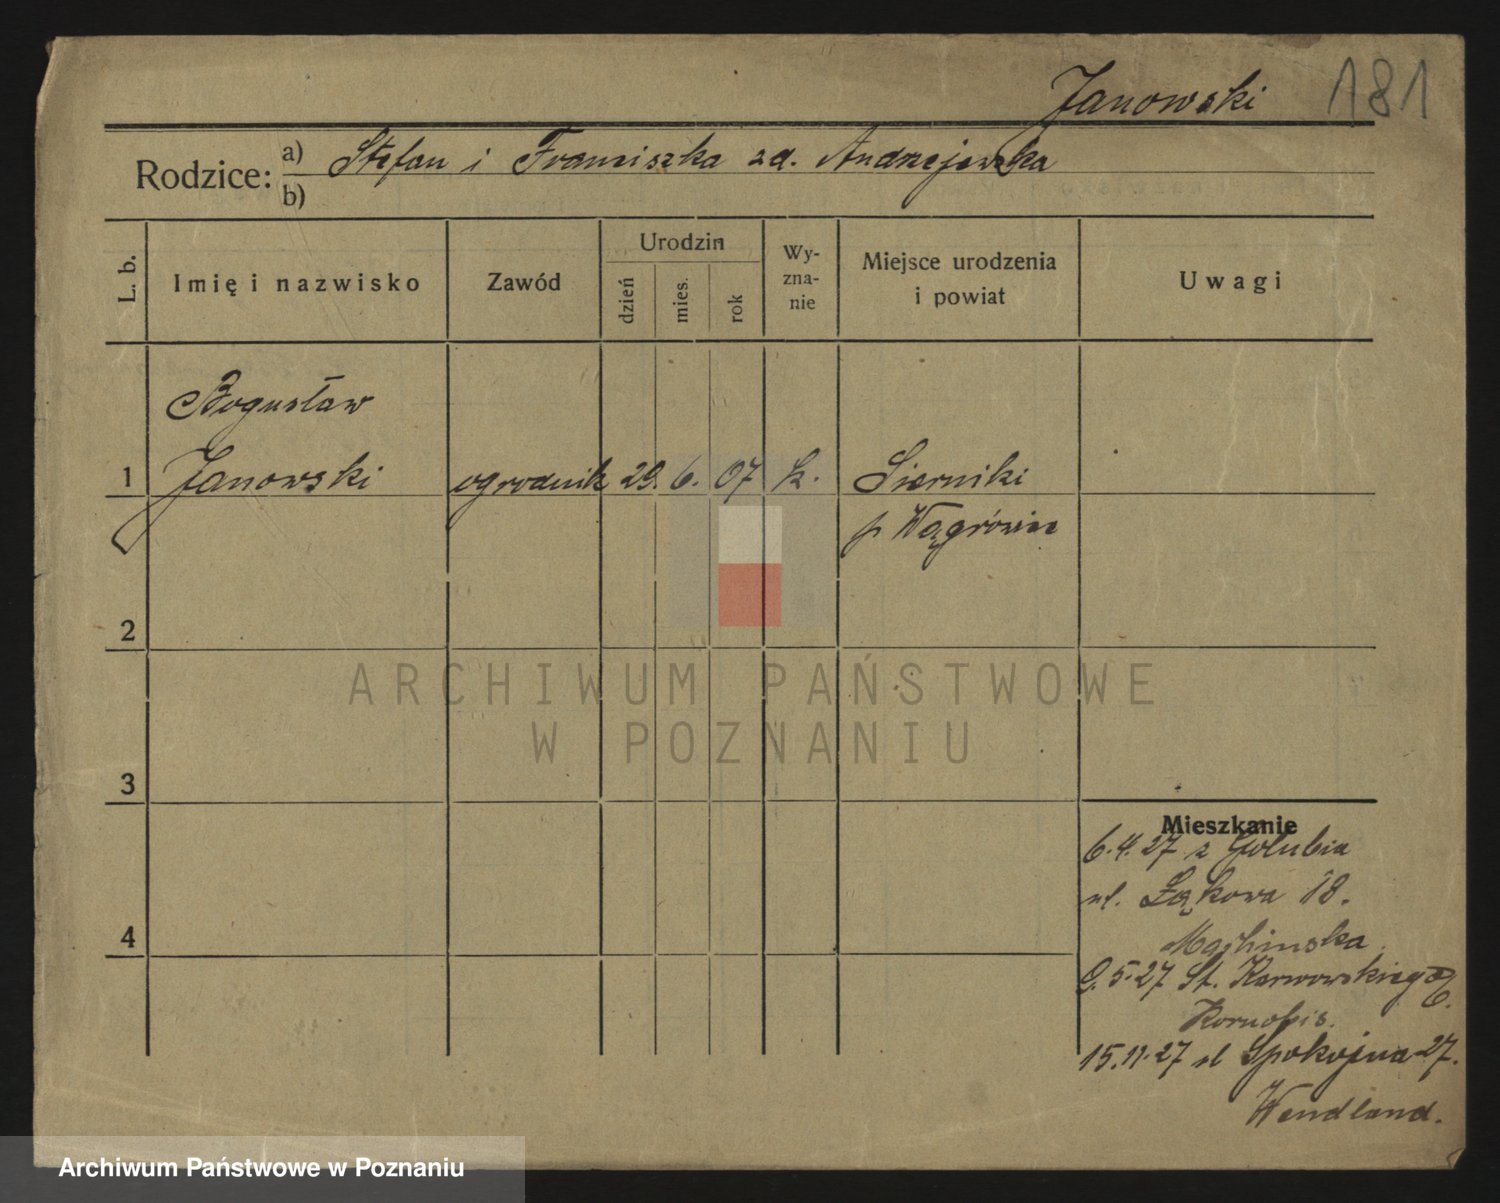 Janowski 181
Rodzice: a) Stefan i Franciszka zd. Andrzejewska
b)
L. b.
Imię i nazwisko
Zawód
Urodzin
dzień
mies.
rok
Wy-
zna-
nie
Miejsce urodzenia
i powiat
Uwagi
Bogusław
1 Janowski ogrodnik 29. 6. 07 k. Sierniki
p Wągrowiec
2
3
4
Mieszkanie
6.4.27 z Golubia
ul. Łąkowa 18.
9.5.27 St. Karwowskiego
15.11.27 ul Spokojna 27.
Wendland.
ARCHIWUM PAŃSTWOWE
W POZNANIU
Archiwum Państwowe w Poznaniu